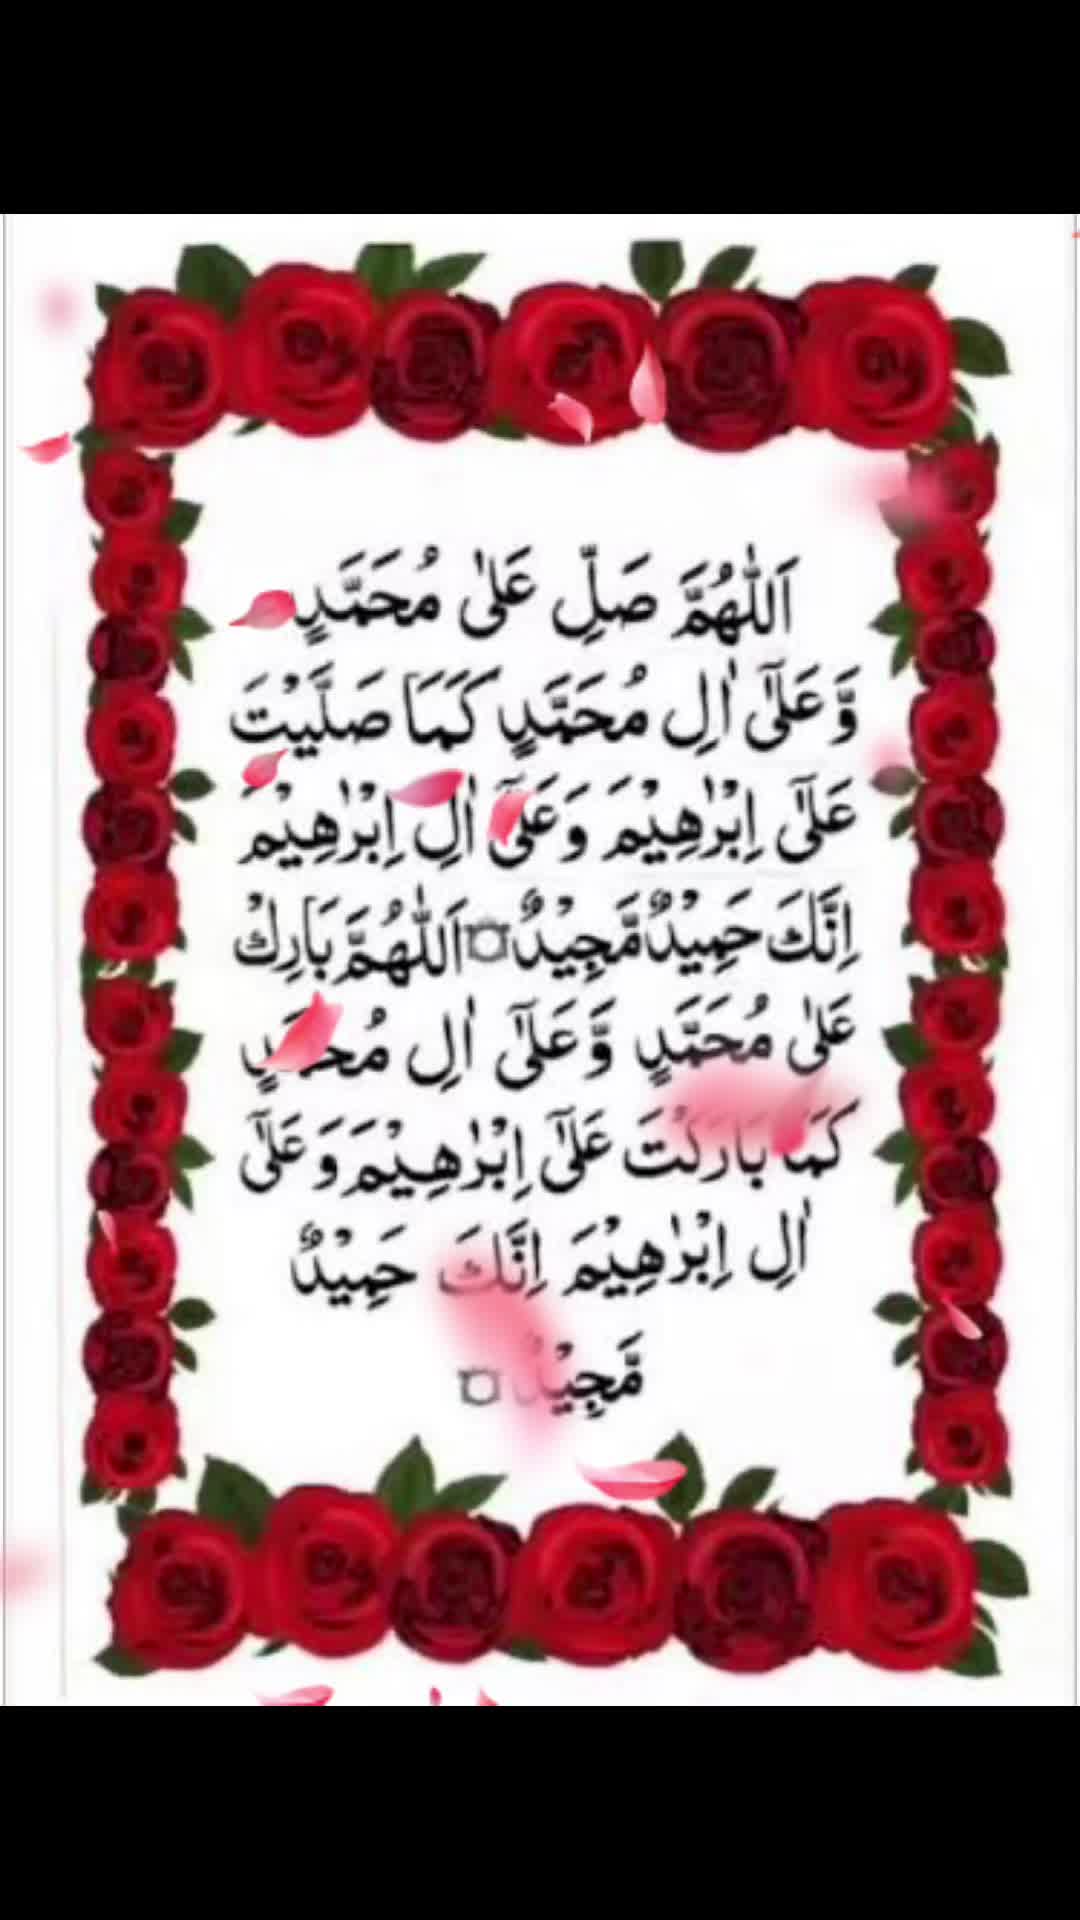 اَللّٰهُمَّ صَلِّ عَلٰى مُحَمَّدٍ
وَّعَلٰٓى اٰلِ مُحَمَّدٍ كَمَا صَلَّيْتَ
عَلٰٓى اِبْرٰهِيْمَ وَعَلٰٓى اٰلِ اِبْرٰهِيْمَ
اِنَّكَ حَمِيْدٌ مَّجِيْدٌ۝اَللّٰهُمَّ بَارِكْ
عَلٰى مُحَمَّدٍ وَّعَلٰٓى اٰلِ مُحَمَّدٍ
كَمَا بَارَكْتَ عَلٰٓى اِبْرٰهِيْمَ وَعَلٰٓى
اٰلِ اِبْرٰهِيْمَ اِنَّكَ حَمِيْدٌ
مَّجِيْدٌ ۝